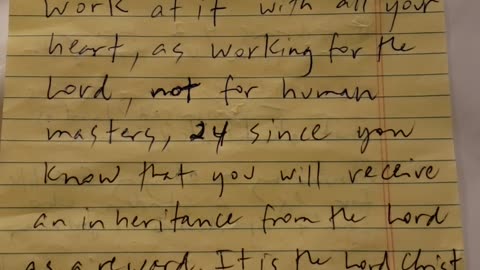 work at it with all your
heart, as working for the
Lord, not for human
masters, 24 since you
know that you will receive
an inheritance from the Lord
as a reward. It is the Lord Christ